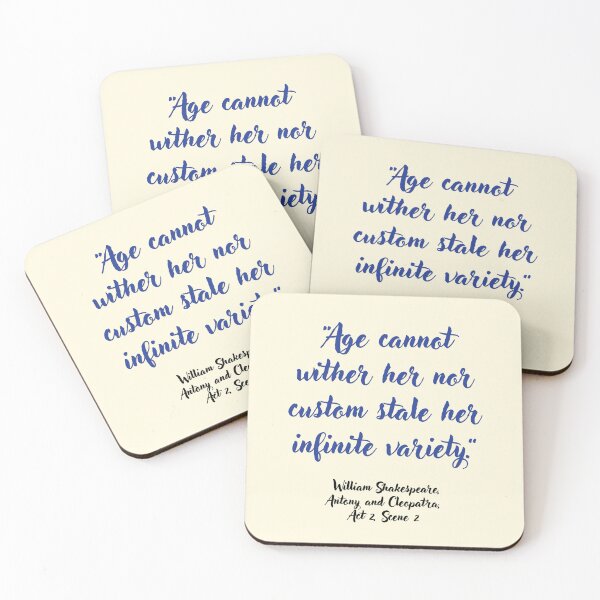 "Age cannot
wither her nor
custom stale her
iety
"Age cannot
wither her nor
custom stale her
infinite variety."
"Age cannot
wither her nor
custom stale her
infinite variety."
William Shakespe
Antony and Cleo
Act 2, Sce
"Age cannot
wither her nor
custom stale her
infinite variety."
William Shakespeare,
Antony and Cleopatra,
Act 2, Scene 2